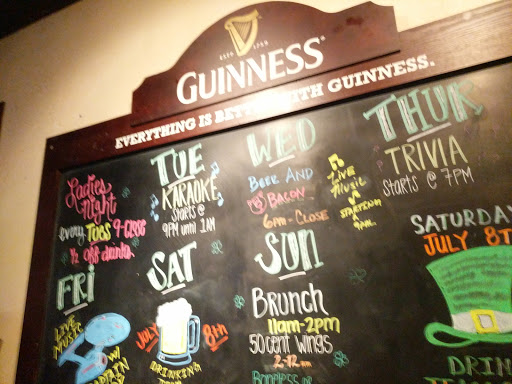 ESTD 1759
GUINNESS
EVERYTHING IS BETTER WITH GUINNESS.
Ladies
Night
every Tues 9-Close
½ off drinks.
TUE
KARAOKE
STARTS @
9PM until 1AM
WED
BEER AND
BACON
6pm-Close
Live
music
STARTING
THUR
TRIVIA
STARTS @ 7PM
FRI
LIVE
MUSIC
W/
SAT
JULY 8th
DRINKING
SUN
Brunch
11am-2pm
50 cent WINGS
2-12am
Boneless
SATURDAY
JULY 8T
DRIN